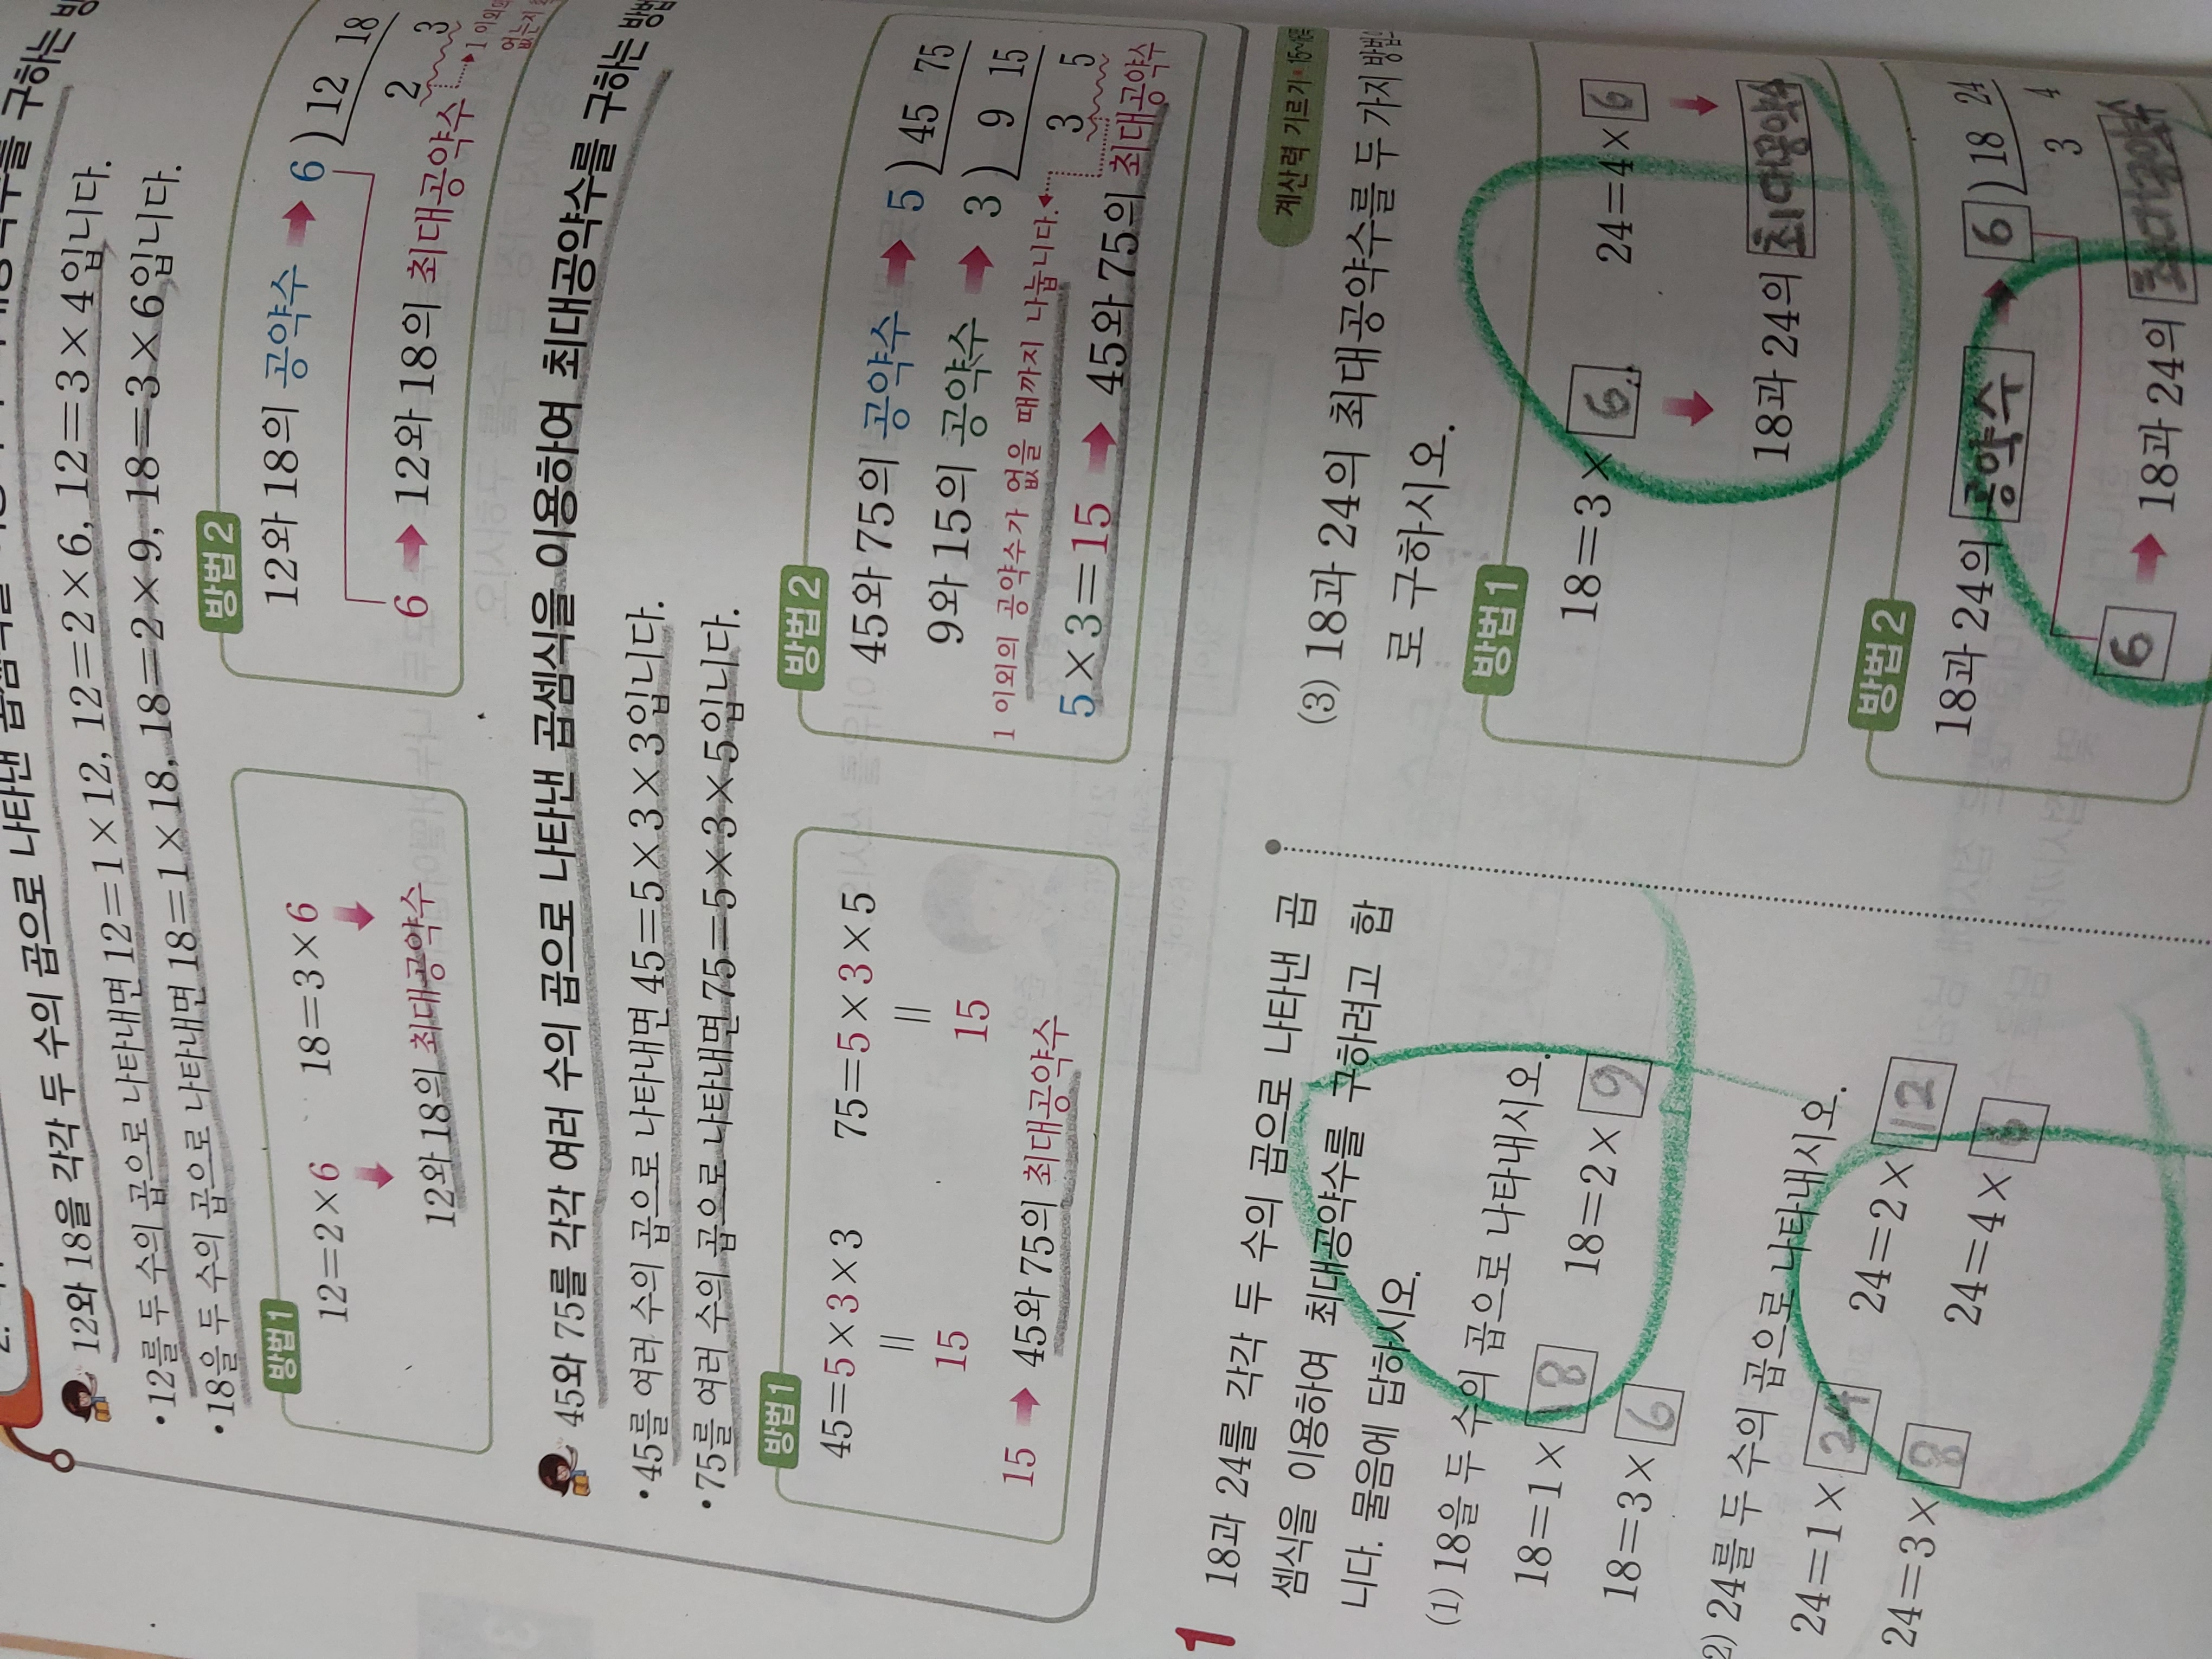 12와 18을 각각 두 수의 곱으로 나타낸
구하는
•12를 두 수의 곱으로 나타내면 12=1×12, 12=2×6, 12=3×4입니다.
•18을 두 수의 곱으로 나타내면 18=1×18, 18=2×9, 18=3×6입니다.
방법 1
12=2×6 18=3×6
12와 18의 최대공약수
방법 2
12와 18의 공약수 → 6 ) 12 18
2 3
6 → 12와 18의 최대공약수
45와 75를 각각 여러 수의 곱으로 나타낸 곱셈식을 이용하여 최대공약수를 구하는 방법
•45를 여러 수의 곱으로 나타내면 45=5×3×3입니다.
•75를 여러 수의 곱으로 나타내면 75=5×3×5입니다.
방법 1
45=5×3×3 75=5×3×5
= =
15 15
15 → 45와 75의 최대공약수
방법 2
45와 75의 공약수 → 5 ) 45 75
9와 15의 공약수 → 3 ) 9 15
3 5
1 이외의 공약수가 없을 때까지 나눕니다.
5×3=15 → 45와 75의 최대공약수
1
18과 24를 각각 두 수의 곱으로 나타낸 곱
셈식을 이용하여 최대공약수를 구하려고 합
니다. 물음에 답하시오.
(1) 18을 두 수의 곱으로 나타내시오.
18=1×18 18=2×9
18=3×6
2) 24를 두 수의 곱으로 나타내시오.
24=1×24 24=2×12
24=3×8 24=4×6
계산력 기르기
(3) 18과 24의 최대공약수를 두 가지 방법으
로 구하시오.
방법 1
18=3×6 24=4×6
18과 24의 최대공약수
방법 2
18과 24의 공약수 → 6 ) 18 24
3 4
6 → 18과 24의 최대공약수